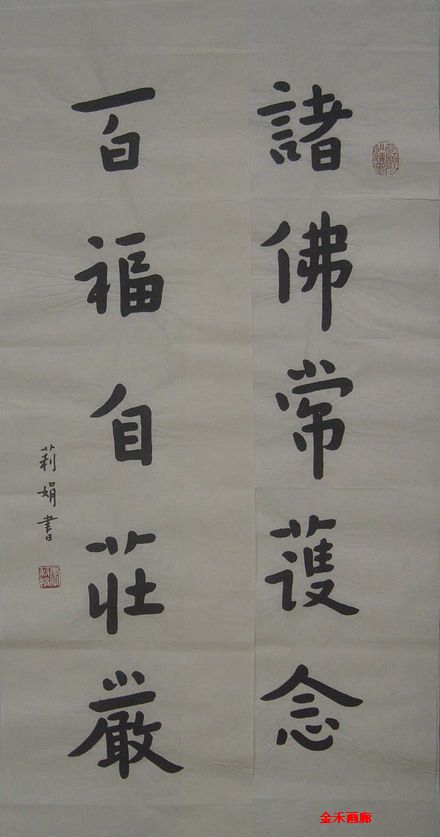 諸佛常護念
百福自莊嚴
莉娟書
金禾画廊